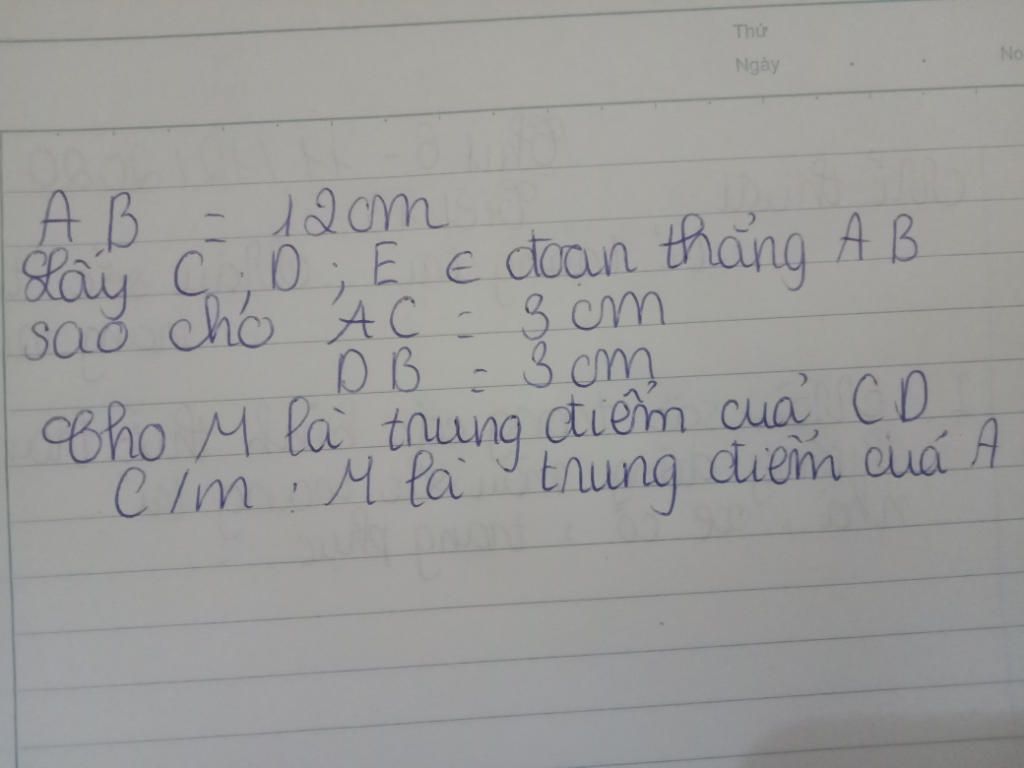 Thứ
Ngày
No
AB = 12cm
Lấy C; D; E ∈ đoạn thẳng AB
sao cho AC = 3 cm
DB = 3 cm
Cho M là trung điểm cuả CD
C/m : M là trung điểm cuả A